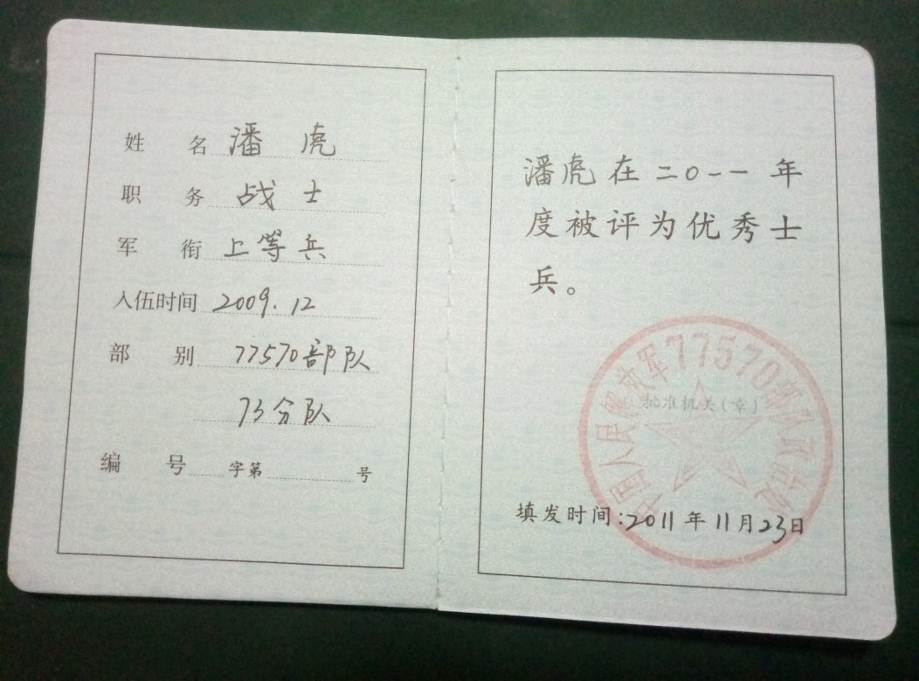 姓 名 潘 虎
职 务 战 士
军 衔 上等兵
入伍时间 2009.12
部 别 77570部队
73分队
编 号 字第 号
潘虎在二〇一一年
度被评为优秀士
兵。
中国人民解放军77570部队政治处
批准机关(章)
填发时间:2011年11月23日